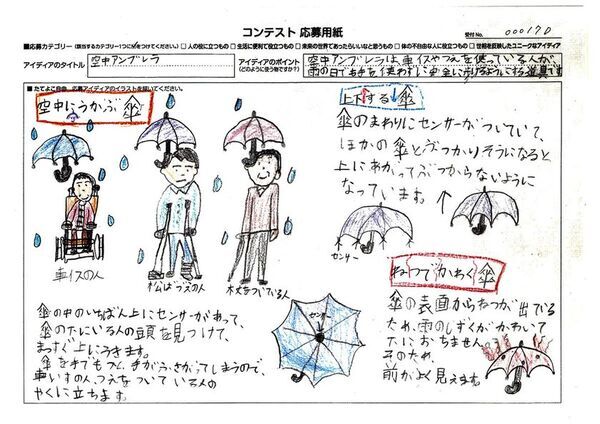 コンテスト 応募用紙
受付No. 00017D
■応募カテゴリー(該当するカテゴリー1つに✓をつけてください。) □人の役に立つもの □生活に便利で役立つもの □未来の世界であったらいいなと思うもの □体の不自由な人に役立つもの □世相を反映したユニークなアイディア
アイディアのタイトル 空中アンブレラ
アイディアのポイント
(どのように使う物ですか?)
空中アンブレラは、車イスやつえを使っている人が、
雨の日でも手を使わずに安全に
道具です
■たてよこ自由、応募アイディアのイラストを描いてください。
空中にうかぶ傘
車イスの人
松ばづえの人
傘の中のいちばん上にセンサーがあって、
傘の下にいる人の頭を見つけて、
まっすぐ上にうきます。
傘を手でもつと、手がふさがってしまうので、
車いすの人、つえをついている人の
やくに立ちます。
センサー
上下する傘
傘のまわりにセンサーがついていて、
ほかの傘とぶつかりそうになると
上にあがってぶつからないように
なっています。
センサー
ねつでかわく傘
傘の表面からねつが出ている
ため、雨のしずくがかわいて
下におちません。
そのため、
前がよく見えます。